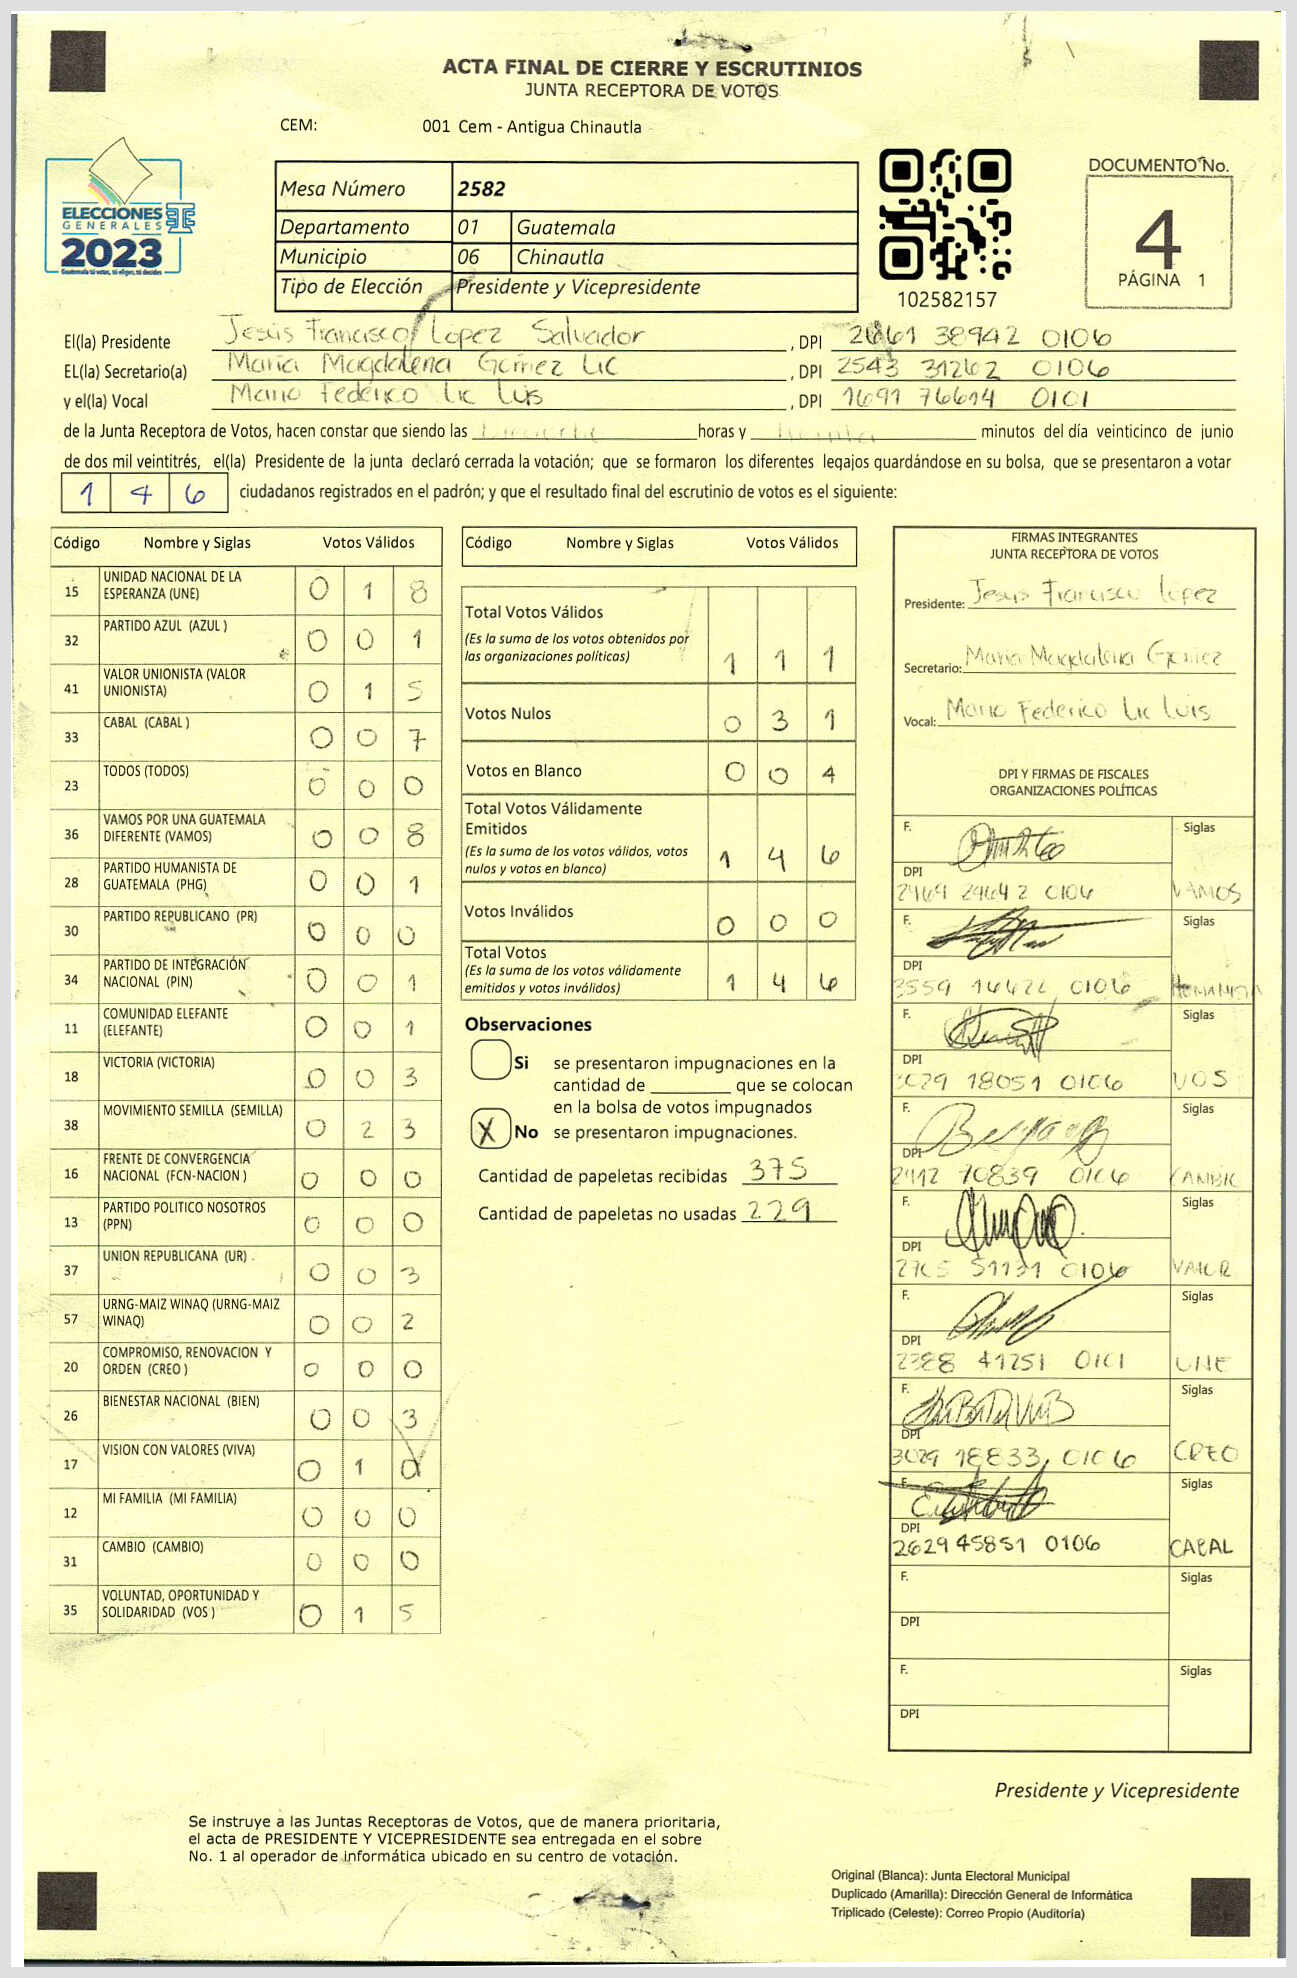 ACTA FINAL DE CIERRE Y ESCRUTINIOS
JUNTA RECEPTORA DE VOTOS
CEM: 001 Cem - Antigua Chinautla
ELECCIONES
GENERALES
2023
Guatemala tú votas, tú eliges, tú decides
Mesa Número 2582
Departamento 01 Guatemala
Municipio 06 Chinautla
Tipo de Elección Presidente y Vicepresidente
102582157
DOCUMENTO No.
4
PÁGINA 1
El(la) Presidente Jesús Francisco López Salvador, DPI 2661 38942 0106
EL(la) Secretario(a) María Magdalena Gómez Lic, DPI 2543 31262 0106
y el(la) Vocal Mario Federico Lic Luis, DPI 1691 76614 0101
de la Junta Receptora de Votos, hacen constar que siendo las horas y minutos del día veinticinco de junio
de dos mil veintitrés, el(la) Presidente de la junta declaró cerrada la votación; que se formaron los diferentes legajos guardándose en su bolsa, que se presentaron a votar
1 4 6 ciudadanos registrados en el padrón; y que el resultado final del escrutinio de votos es el siguiente:
Código Nombre y Siglas Votos Válidos
15 UNIDAD NACIONAL DE LA ESPERANZA (UNE) 0 1 8
32 PARTIDO AZUL (AZUL ) 0 0 1
41 VALOR UNIONISTA (VALOR UNIONISTA) 0 1 5
33 CABAL (CABAL ) 0 0 7
23 TODOS (TODOS) 0 0 0
36 VAMOS POR UNA GUATEMALA DIFERENTE (VAMOS) 0 0 8
28 PARTIDO HUMANISTA DE GUATEMALA (PHG) 0 0 1
30 PARTIDO REPUBLICANO (PR) 0 0 0
34 PARTIDO DE INTEGRACIÓN NACIONAL (PIN) 0 0 1
11 COMUNIDAD ELEFANTE (ELEFANTE) 0 0 1
18 VICTORIA (VICTORIA) 0 0 3
38 MOVIMIENTO SEMILLA (SEMILLA) 0 2 3
16 FRENTE DE CONVERGENCIA NACIONAL (FCN-NACION ) 0 0 0
13 PARTIDO POLITICO NOSOTROS (PPN) 0 0 0
37 UNION REPUBLICANA (UR) 0 0 3
57 URNG-MAIZ WINAQ (URNG-MAIZ WINAQ) 0 0 2
20 COMPROMISO, RENOVACION Y ORDEN (CREO ) 0 0 0
26 BIENESTAR NACIONAL (BIEN) 0 0 3
17 VISION CON VALORES (VIVA) 0 1 0
12 MI FAMILIA (MI FAMILIA) 0 0 0
31 CAMBIO (CAMBIO) 0 0 0
35 VOLUNTAD, OPORTUNIDAD Y SOLIDARIDAD (VOS ) 0 1 5
Código Nombre y Siglas Votos Válidos
Total Votos Válidos
(Es la suma de los votos obtenidos por
las organizaciones políticas) 1 1 1
Votos Nulos 0 3 1
Votos en Blanco 0 0 4
Total Votos Válidamente
Emitidos
(Es la suma de los votos válidos, votos
nulos y votos en blanco) 1 4 6
Votos Inválidos 0 0 0
Total Votos
(Es la suma de los votos válidamente
emitidos y votos inválidos) 1 4 6
Observaciones
Si se presentaron impugnaciones en la
cantidad de ________ que se colocan
en la bolsa de votos impugnados
X No se presentaron impugnaciones.
Cantidad de papeletas recibidas 375
Cantidad de papeletas no usadas 229
FIRMAS INTEGRANTES
JUNTA RECEPTORA DE VOTOS
Presidente: Jesús Francisco López
Secretario: María Magdalena Gómez
Vocal: Mario Federico Lic Luis
DPI Y FIRMAS DE FISCALES
ORGANIZACIONES POLÍTICAS
F. Siglas
DPI
2469 29642 0106 VAMOS
F. Siglas
DPI
3559 0106 HUMANISTA
F. Siglas
DPI
3029 18051 0106 VOS
F. Siglas
DPI
2412 70839 0106 CAMBIO
F. Siglas
DPI
2705 51131 0106 VALOR
F. Siglas
DPI
2388 41251 0101 UNE
F. Siglas
DPI
3029 18833 0106 CREO
F. Siglas
DPI
2629 45851 0106 CABAL
F. Siglas
DPI
F. Siglas
DPI
Presidente y Vicepresidente
Se instruye a las Juntas Receptoras de Votos, que de manera prioritaria,
el acta de PRESIDENTE Y VICEPRESIDENTE sea entregada en el sobre
No. 1 al operador de informática ubicado en su centro de votación.
Original (Blanca): Junta Electoral Municipal
Duplicado (Amarilla): Dirección General de Informática
Triplicado (Celeste): Correo Propio (Auditoría)